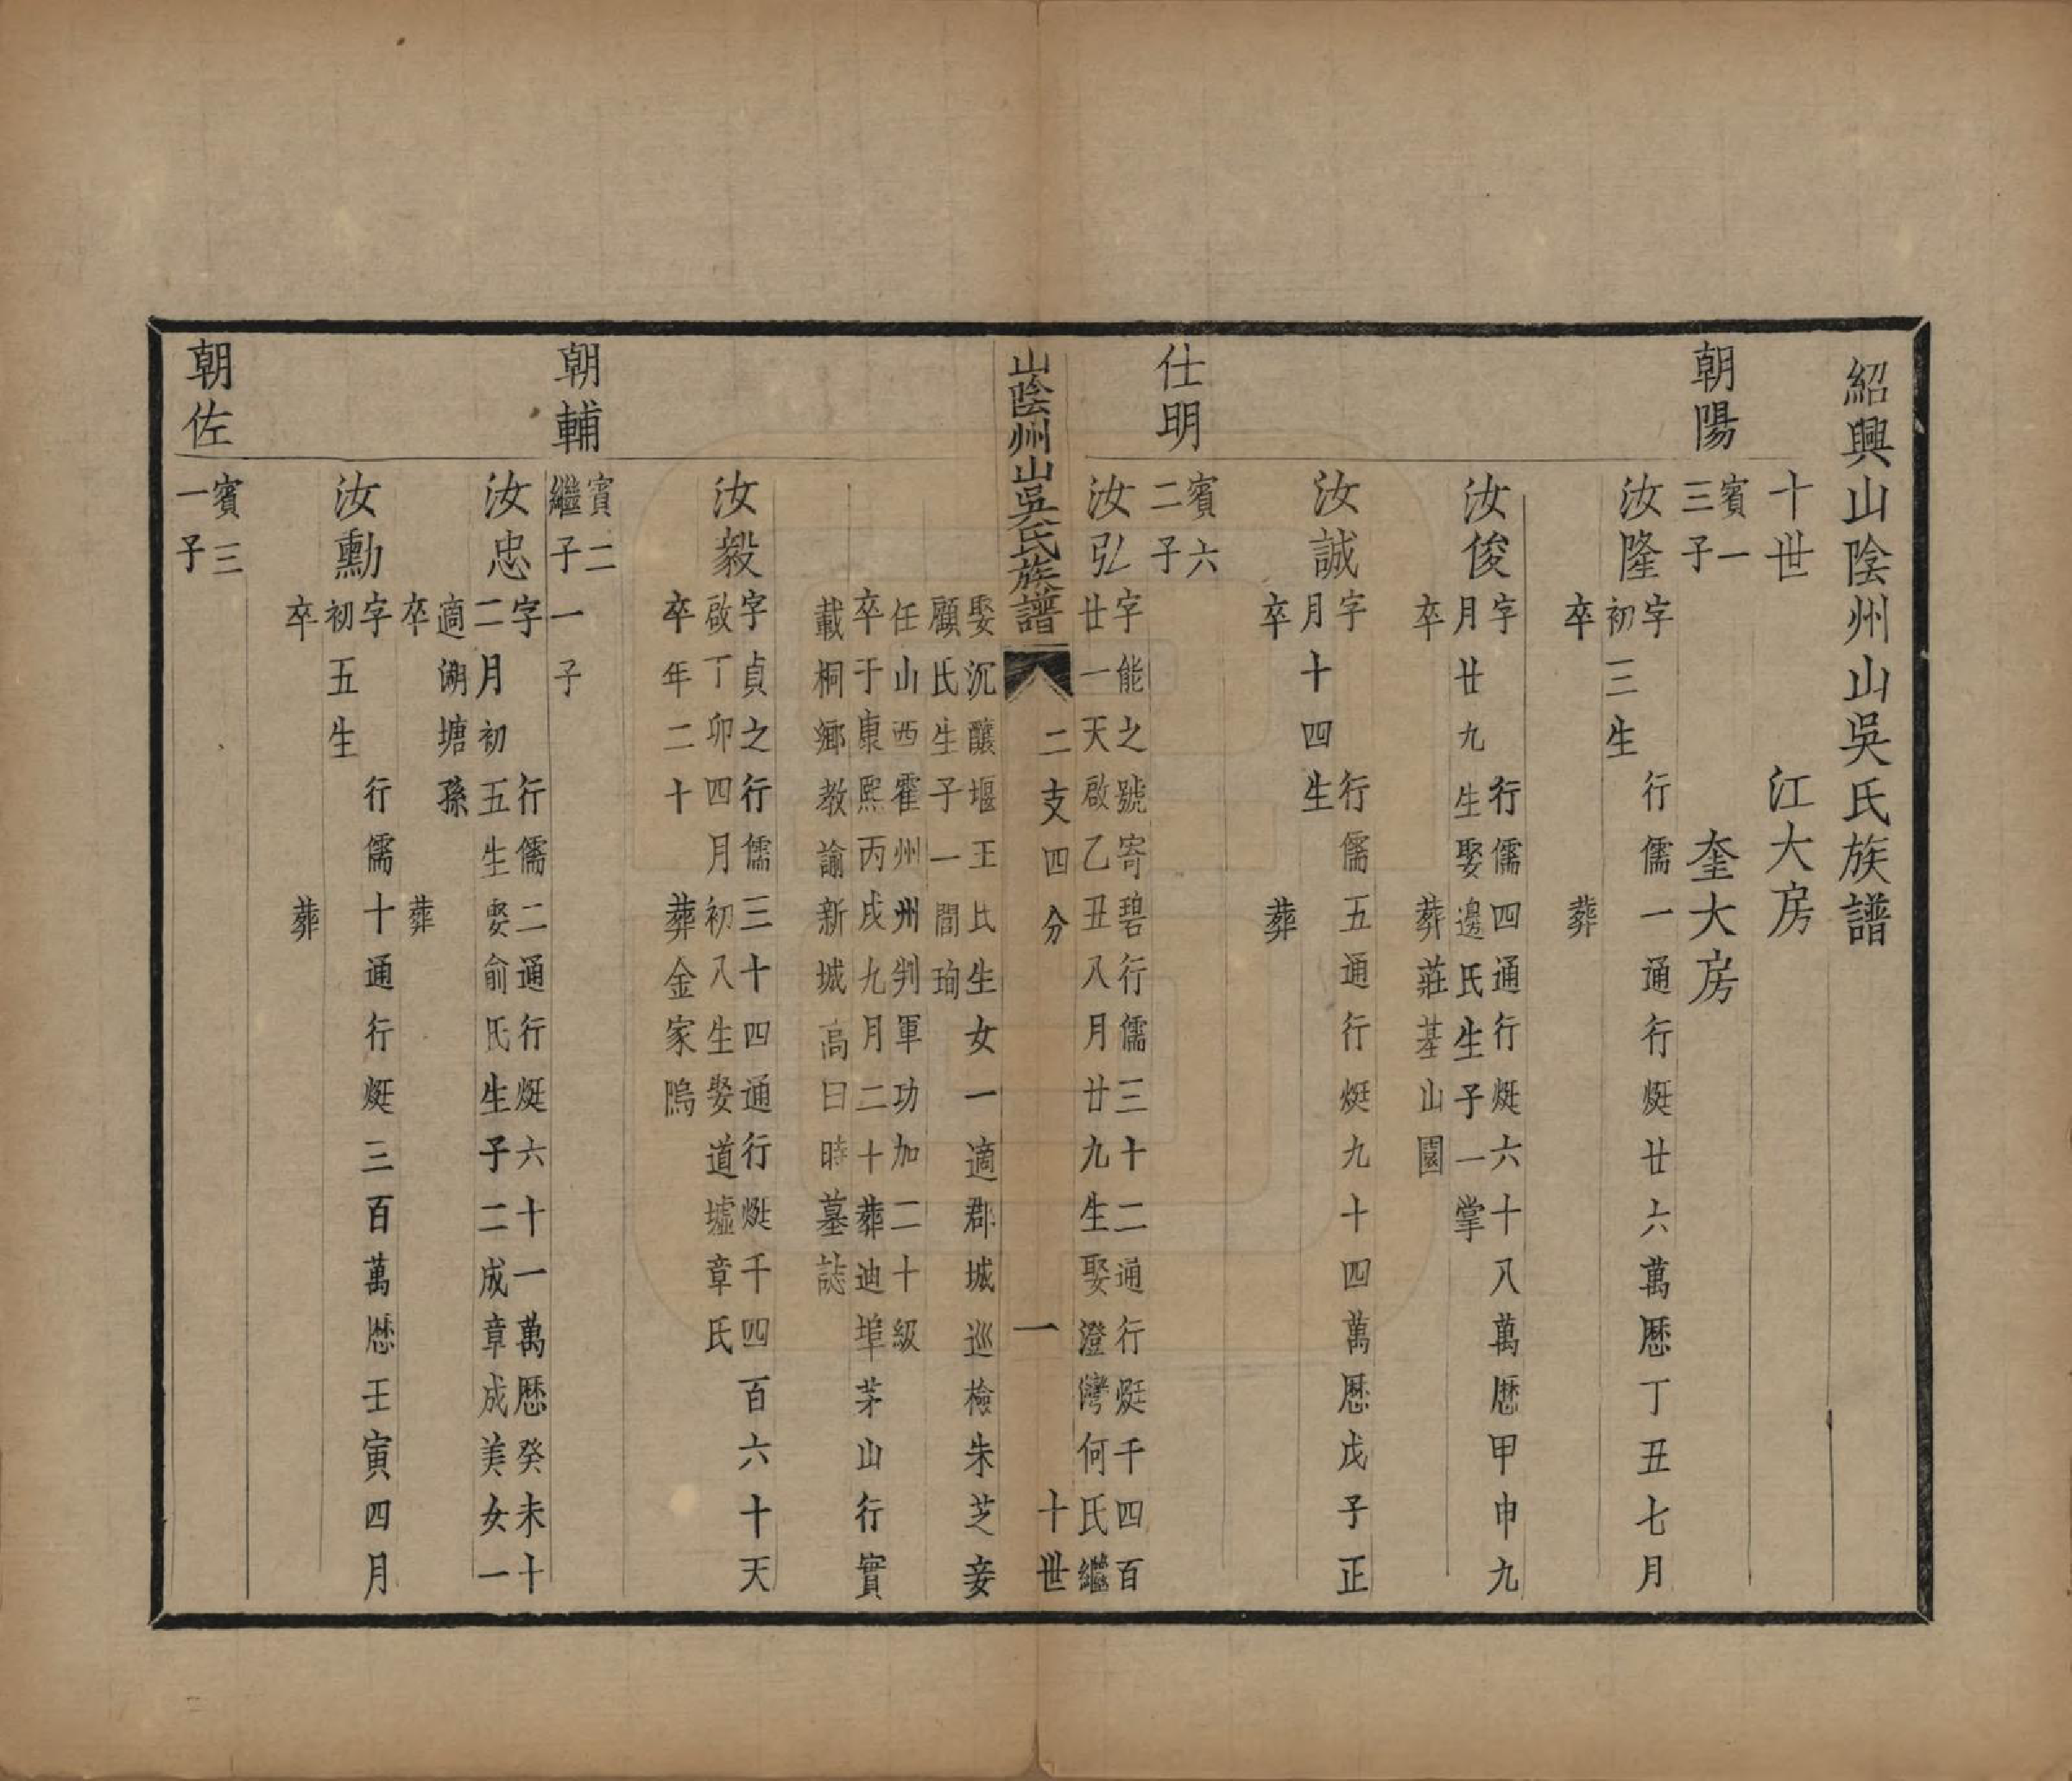 紹興山陰州山吳氏族譜
十世　江大房
奎大房
朝陽
賓一
三子
汝隆
字　行儒一通行烻廿六萬歷丁丑七月
初三生
卒　葬
汝俊
字　行儒四通行烻六十八萬歷甲申九
月廿九生娶邊氏生子一掌
卒　葬莊基山園
汝誠
字　行儒五通行烻九十四萬歷戊子正
月十四生
卒　葬
仕明
賓六
二子
汝弘
字能之號寄碧行儒三十二通行烻千四百
廿一天啟乙丑八月廿九生娶澄灣何氏繼
山陰州山吳氏族譜　二支四分　一　十世
娶沉釀堰王氏生女一適郡城巡檢朱芝妾
顧氏生子一間珣
任山西霍州州判軍功加二十級
卒于康熙丙戌九月二十葬迪埠茅山行實
載桐鄉教諭新城高曰時墓誌
汝毅
字貞之行儒三十四通行烻千四百六十天
啟丁卯四月初八生娶道墟章氏
卒年二十　葬金家塢
朝輔
賓二
繼子一子
汝忠
字　行儒二通行烻六十一萬歷癸未十
二月初五生娶俞氏生子二成章成美女一
適湖塘孫
卒　葬
汝勳
字　行儒十通行烻三百萬歷壬寅四月
初五生
卒　葬
朝佐
賓三
一子